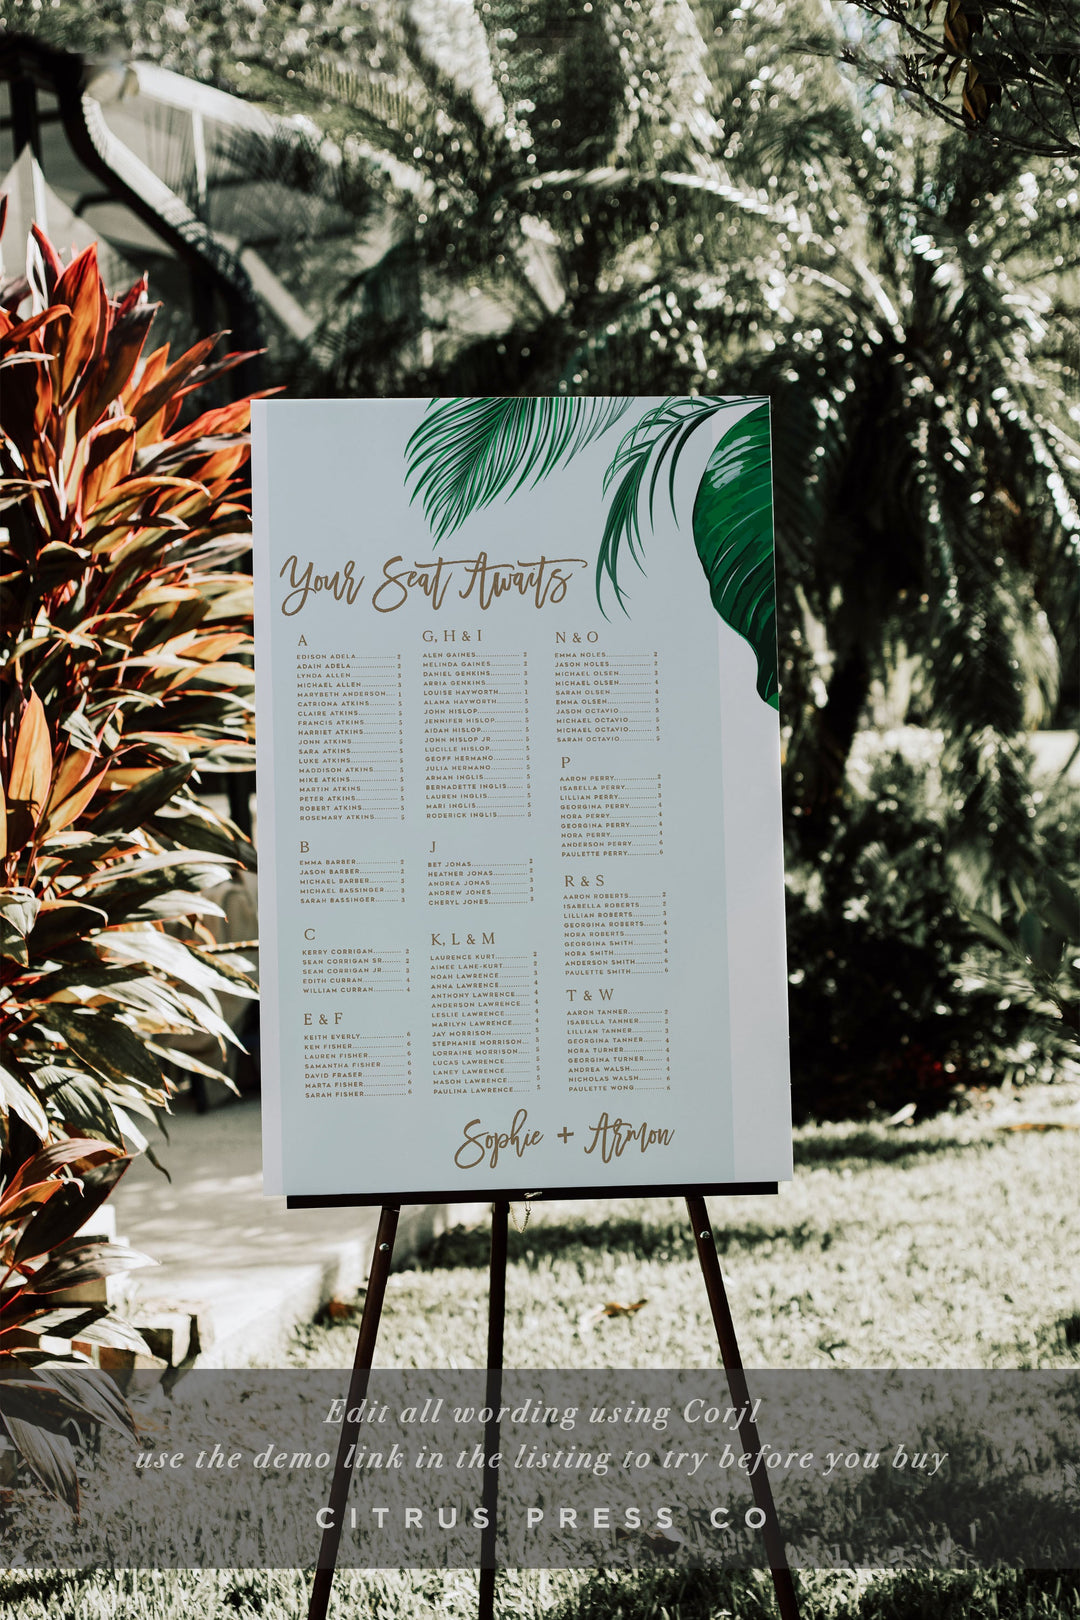 Your Seat Awaits
A
EDISON ADELA 2
ADAIN ADELA 2
LYNDA ALLEN 3
MICHAEL ALLEN 3
MARYBETH ANDERSON 1
CATRIONA ATKINS 5
CLAIRE ATKINS 5
FRANCIS ATKINS 5
HARRIET ATKINS 5
JOHN ATKINS 5
SARA ATKINS 5
LUKE ATKINS 5
MADDISON ATKINS 5
MIKE ATKINS 5
MARTIN ATKINS 5
PETER ATKINS 5
ROBERT ATKINS 5
ROSEMARY ATKINS 5
B
EMMA BARBER 2
JASON BARBER 2
MICHAEL BARBER 3
MICHAEL BASSINGER 3
SARAH BASSINGER 3
C
KERRY CORRIGAN 2
SEAN CORRIGAN SR 2
SEAN CORRIGAN JR 3
EDITH CURRAN 4
WILLIAM CURRAN 4
E & F
KEITH EVERLY 6
KEN FISHER 6
LAUREN FISHER 6
SAMANTHA FISHER 6
DAVID FRASER 6
MARTA FISHER 6
SARAH FISHER 6
G, H & I
ALEN GAINES 2
MELINDA GAINES 2
DANIEL GENKINS 3
ARRIA GENKINS 3
LOUISE HAYWORTH 1
ALANA HAYWORTH 5
JOHN HISLOP 5
JENNIFER HISLOP 5
AIDAN HISLOP 5
JOHN HISLOP JR 5
LUCILLE HISLOP 5
GEOFF HERMANO 5
JULIA HERMANO 5
ARMAN INGLIS 5
BERNADETTE INGLIS 5
LAUREN INGLIS 5
MARI INGLIS 5
RODERICK INGLIS 5
J
BET JONAS 2
HEATHER JONAS 2
ANDREA JONAS 3
ANDREW JONES 3
CHERYL JONES 3
K, L & M
LAURENCE KURT 2
AIMEE LANE-KURT 2
NOAH LAWRENCE 3
ANNA LAWRENCE 4
ANTHONY LAWRENCE 4
ANDERSON LAWRENCE 4
LESLIE LAWRENCE 4
MARILYN LAWRENCE 4
JAY MORRISON 5
STEPHANIE MORRISON 5
LORRAINE MORRISON 5
LUCAS LAWRENCE 5
LANEY LAWRENCE 5
MASON LAWRENCE 5
PAULINA LAWRENCE 5
N & O
EMMA NOLES 2
JASON NOLES 2
MICHAEL OLSEN 3
MICHAEL OLSEN 3
SARAH OLSEN 4
EMMA OLSEN 5
JASON OCTAVIO 5
MICHAEL OCTAVIO 5
MICHAEL OCTAVIO 5
SARAH OCTAVIO 5
P
AARON PERRY 2
ISABELLA PERRY 2
LILLIAN PERRY 3
GEORGINA PERRY 4
NORA PERRY 4
GEORGINA PERRY 4
NORA PERRY 4
ANDERSON PERRY 6
PAULETTE PERRY 6
R & S
AARON ROBERTS 2
ISABELLA ROBERTS 2
LILLIAN ROBERTS 3
GEORGINA ROBERTS 4
NORA ROBERTS 4
GEORGINA SMITH 4
NORA SMITH 4
ANDERSON SMITH 6
PAULETTE SMITH 6
T & W
AARON TANNER 2
ISABELLA TANNER 2
LILLIAN TANNER 3
GEORGINA TANNER 4
NORA TURNER 4
GEORGINA TURNER 4
ANDREA WALSH 4
NICHOLAS WALSH 6
PAULETTE WONG 6
Sophie + Armon
Edit all wording using Corjl
use the demo link in the listing to try before you buy
CITRUS PRESS CO